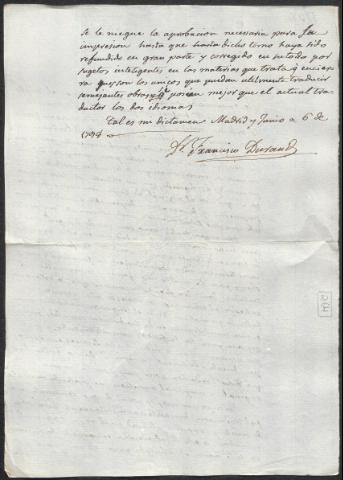 se le niegue la aprobacion necesaria para la
impresion hasta que dicho tomo haya sido
refundido en gran parte y corregido en un todo por
sugetos inteligentes en las materias que trata y
que son los unicos que puedan utilmente traducir
semejantes obras y poseen mejor que el actual tra-
ductor los dos idiomas
Tal es mi dictamen Madrid y Junio a 6 de
Dr Francisco Durand